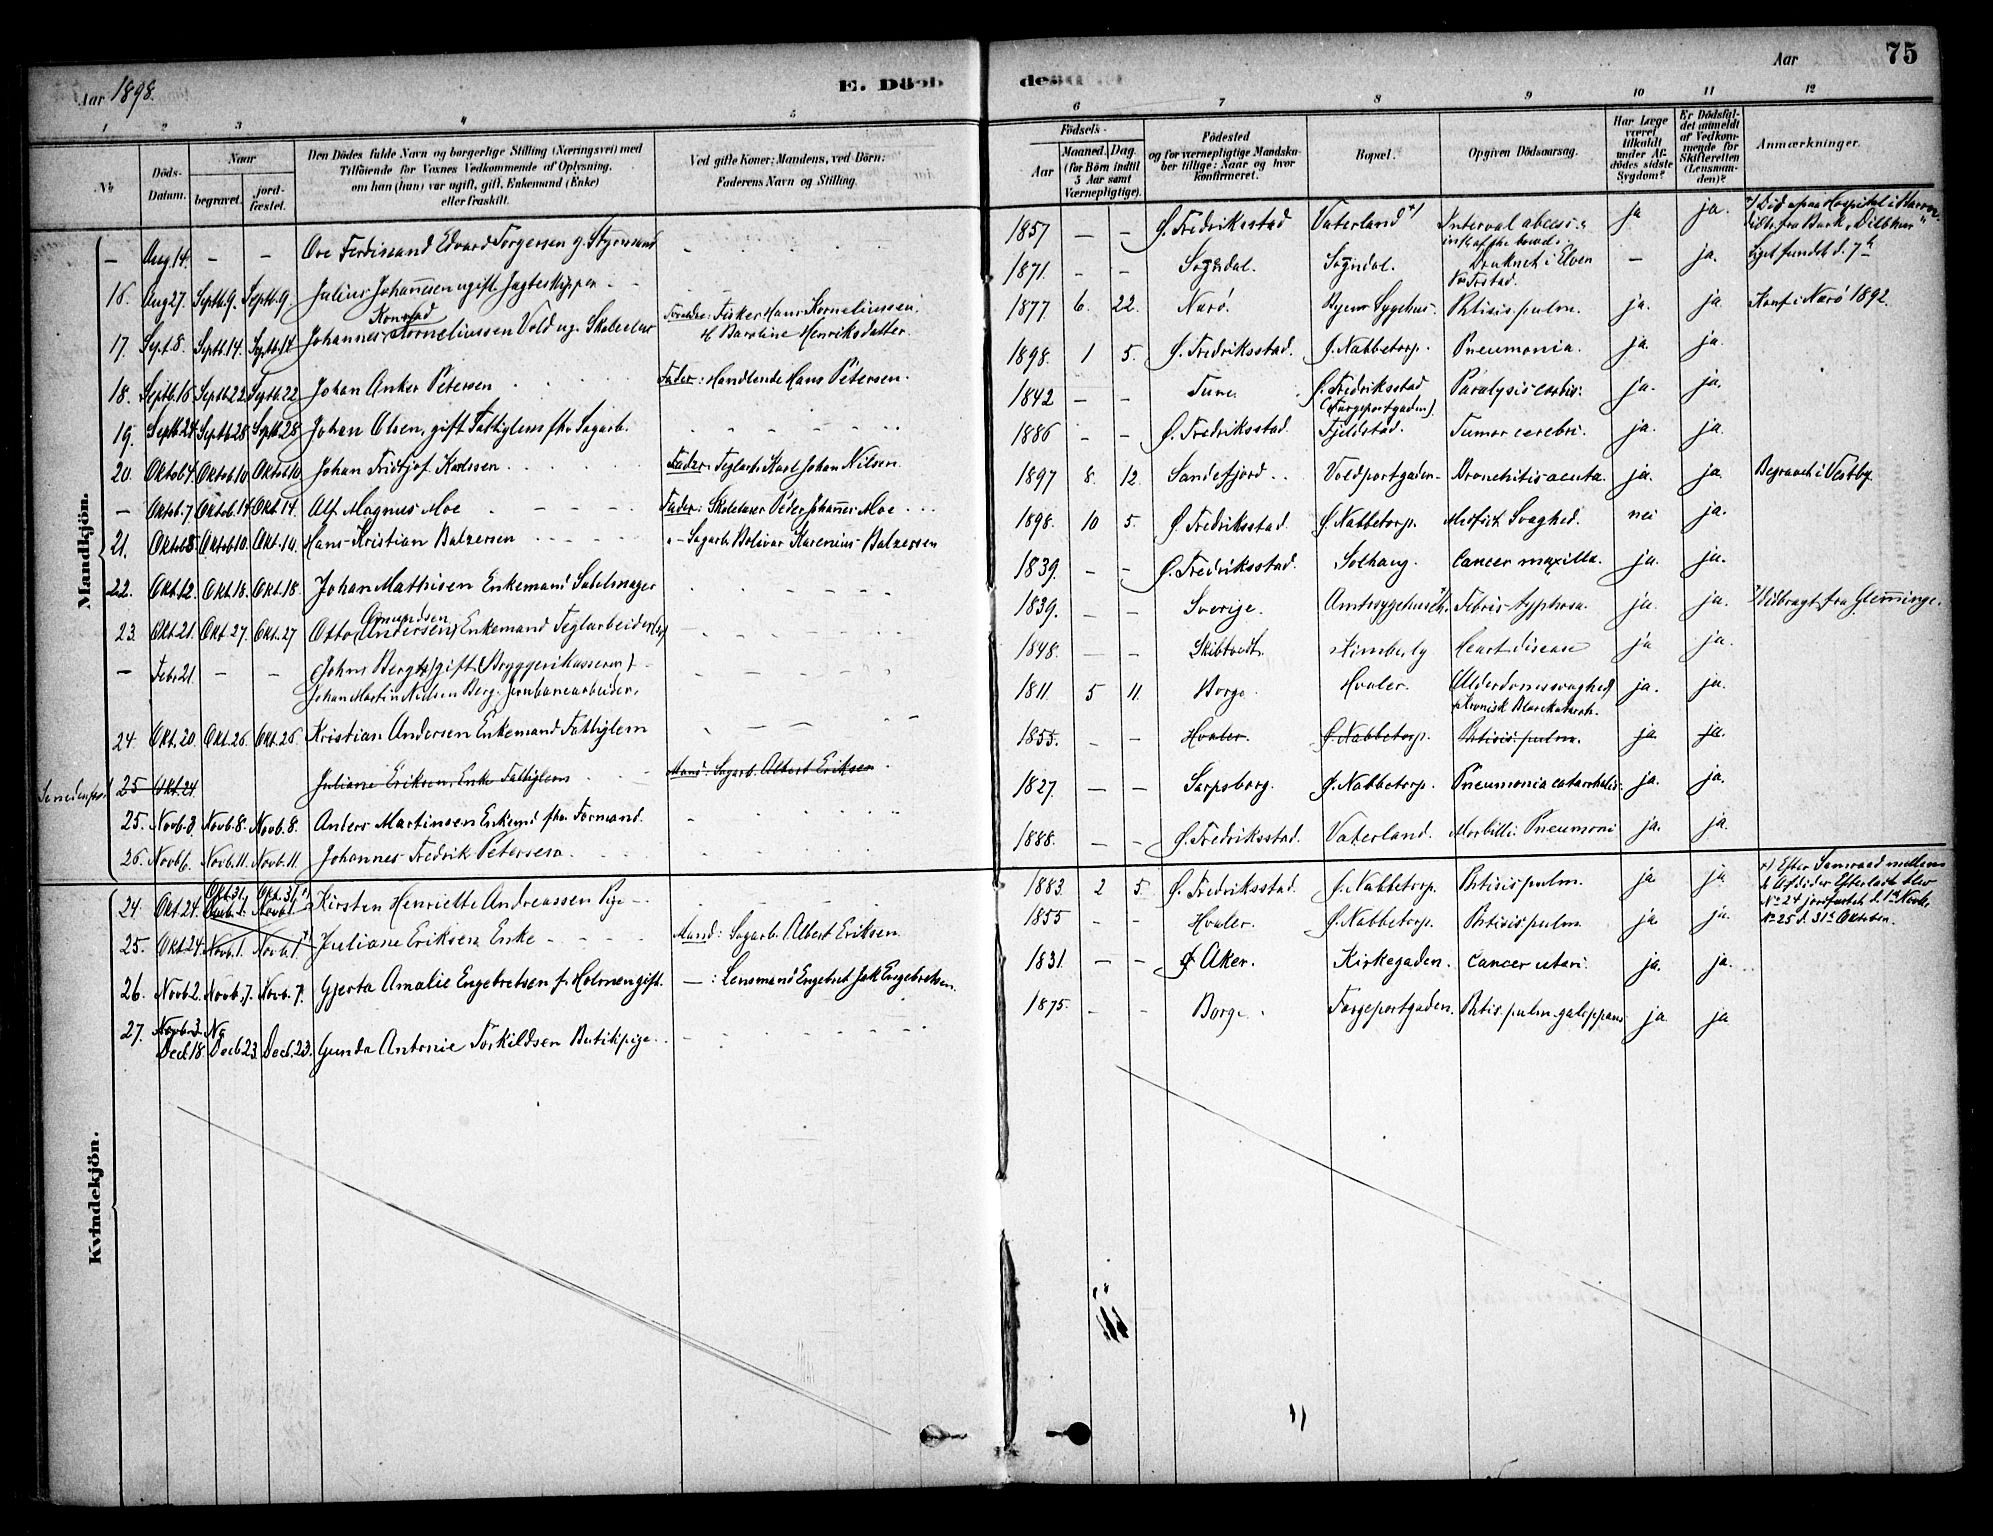 Aar 1898.
E. Döde
Aar
75
1 2 3 4 5 6 7 8 9 10 11 12
No
Döds-Datum.
Naar
begravet.
jord-fæstet.
Den Dödes fulde Navn og borgerlige Stilling (Næringsvei) med
Tilföiende for Voxnes Vedkommende af Oplysning,
om han (hun) var ugift, gift, Enkemand (Enke)
eller fraskilt.
Ved gifte Koner: Mandens, ved Börn:
Faderens Navn og Stilling.
Födsels-
Aar
Maaned. Dag.
(for Börn indtil
5 Aar samt
Værnepligtige).
Födested
og for værnepligtige Mandska-
ber tillige: Naar og hvor
konfirmeret.
Bopæl.
Opgiven Dödsaarsag.
Har Læge
været
tilkaldt
under Af-
dödes sidste
Sygdom?
Er Dödsfal-
det anmeldt
af Vedkom-
mende for
Skifteretten
(Lensman-
den)?
Anmærkninger.
Mandkjön.
— Aug. 14. — — Ove Ferdinand Edvard Torgersen g. Styrmand — 1857 — — Ø. Fredriksstad Vaterland +) Interval abcesi ja ja. +) Död paa Hospital i
16. Aug 27. Septb. 9. Septb. 9. Julius Johannesen ugift Jagteskipper — 1871. — — Sogndal. Sogndal. Druknet i Elven — ja. Liget fundet d. 7de
17. Sept. 8. Septb. 14 Septb. 14 Johannes Konrad Korneliussen Vold ug. Skoleelev Forældre: Fisker Hans Korneliussen 1877 6. 22. Narö. Byens Sygehus. Phtisis pulm. ja. ja Konf. i Narö 1892.
& Baroline Henriksdatter.
18. Septb. 16 Septb. 22 Septb. 22 Johan Anker Petersen Fader: Handlende Hans Petersen. 1898. 1 5. Ø. Fredriksstad. Ø. Nabbetorp. Pneumonia. ja. ja.
19. Septb. 24 Septb. 28 Septb. 28 Johan Olsen, gift Fattiglem fhv. Sagarb. 1842 — — Tune Ø. Fredriksstad (Færgeportgaden). Paralysis cordis. ja. ja.
20. Oktob. 4. Oktob. 10 Oktob. 10 Johan Fridtjof Karlssen Fader: Teglarb. Karl Johan Nilsen. 1886 — — Ø. Fredriksstad. Fjeldstad. Tumor cerebri. ja. ja.
— Oktob. 7 Oktob. 14 Okt. 14. Alf Magnus Moe Fader: Skolelærer Peder Johannes Moe 1897 8. 12. Sandefjord Voldportgaden Bronchitis acuta. ja. ja. Begravet i Vestby.
21. Oktob. 8 Oktob. 10 Okt. 10. Hans Kristian Balzersen — Sagarb. Bolivar Karenius Balzersen 1898. 10 5. Ø. Fredriksstad. Ø. Nabbetorp. Medfödt Svaghed. nei ja.
22. Okt. 12. Okt. 18. Okt. 18. Johan Mathisen Enkemand Sadelmager 1839. — — Ø. Fredriksstad. Solhaug. Cancer maxilla. ja. ja.
23. Okt. 21. Okt. 27 Okt. 27 Otto Amundsen (Andersen) Enkemand Teglarbeider 1839. — — Sverige. Amtssygehuset. Febris typhosa. ja. ja. Udbragt fra Glemminge.
— Febr 21. — — (Johns Bergh) gift (Bryggerikasserer) 1848. — — Skibtvedt. Kimberly Heart disease ja ja.
Johan Martin Nielsen Berg. Jernbanearbeider.
24. Okt. 20. Okt. 26 Okt. 26. Kristian Andersen Enkemand Fattiglem 1811 5 11. Borge Hvaler. Alderdomssvaghed kronisk Blærekatarrh. ja. ja.
Se nedenfor 25 Okt. 24 Juliane Eriksen, Enke Fattiglem Mand: Sagarb. Albert Eriksen 1855. — — Hvaler. Ø. Nabbetorp. Phtisis pulm. ja. ja.
25. Novb. 3. Novb. 8. Novb. 8. Anders Martinsen Enkemd. fhv. Formand. 1827. — — Sarpsborg. Ø. Nabbetorp. Pneumonia catarrhalis. ja. ja.
26. Novb. 6. Novb. 11. Novb. 11. Johannes Fredrik Petersen. 1888. — — Ø. Fredriksstad. Vaterland. Morbilli Pneumoni ja. ja.
Kvindekjön.
24. Okt. 24. Okt. 31. Novb. 1. Okt. 31. Novb. 1. Kirsten Henriette Andreassen Pige 1883. 2 5. Ø. Fredriksstad. Ø. Nabbetorp. Phtisis pulm. ja ja +) Efter Samraad mellem
de Afdödes Efterladte blev
No 24 jordfæstet d. 1ste Novb.
No 25 d. 31te Oktober.
25. Okt. 24 Novb. 1. Novb. 1. Juliane Eriksen Enke Mand: Sagarb. Albert Eriksen. 1855 — — Hvaler. Ø. Nabbetorp. Phtisis pulm. ja ja.
26. Novb. 2. Novb. 7. Novb. 7. Gjerta Amalie Engebretsen f. Holmen gift. — : Lensmand Engebret Jak. Engebretsen. 1831. — — Aker. Kirkegaden. Cancer uteri. ja. ja.
27. Novb. 3 Decb. 18. Decb. 23. Decb. 23. Gunda Antonie Torkildsen Butikpige. 1875. — — Borge. Færgeportgaden. Phtis. pulm. galoppans ja. ja